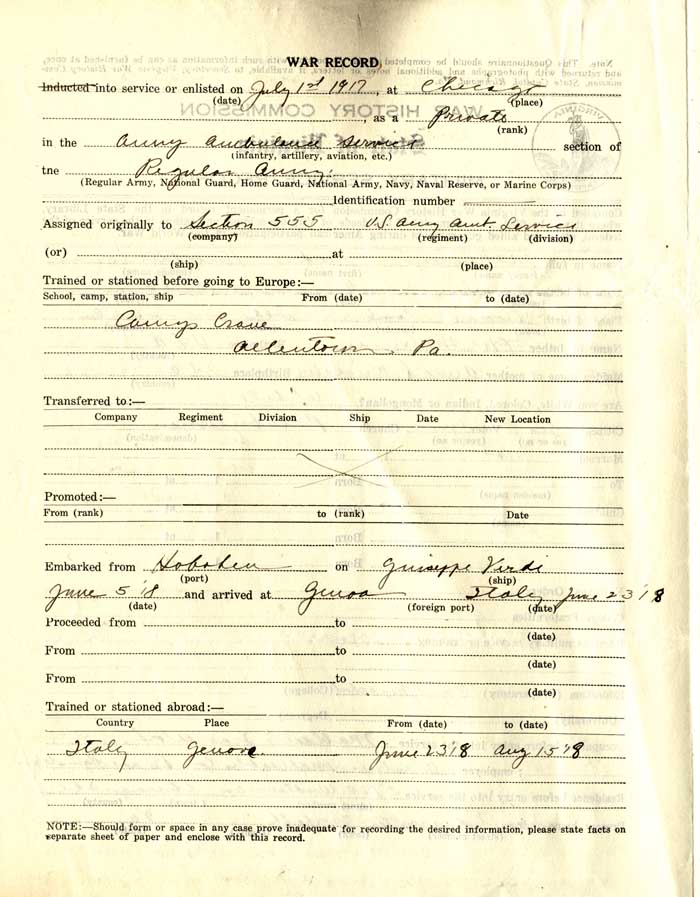 WAR RECORD
Inducted into service or enlisted on July 1st 1917, at Chicago
(date) (place)
, as a Private
(rank)
in the Army Ambulance Service section of
(infantry, artillery, aviation, etc.)
tne Regular Army.
(Regular Army, National Guard, Home Guard, National Army, Navy, Naval Reserve, or Marine Corps)
Identification number
Assigned originally to Section 555 U.S. Army Amb. Service
(company) (regiment) (division)
(or) at
(ship) (place)
Trained or stationed before going to Europe:—
School, camp, station, ship From (date) to (date)
Camp Crane
Allentown Pa.
Transferred to:—
Company Regiment Division Ship Date New Location
Promoted:—
From (rank) to (rank) Date
Embarked from Hoboken on Guiseppe Verdi
(port) (ship)
June 5 '18 and arrived at Genoa Italy June 23 '18
(date) (foreign port) (date)
Proceeded from to
(date)
From to
(date)
From to
(date)
Trained or stationed abroad:—
Country Place From (date) to (date)
Italy Genova June 23 '18 Aug 15 '18
NOTE:—Should form or space in any case prove inadequate for recording the desired information, please state facts on
separate sheet of paper and enclose with this record.